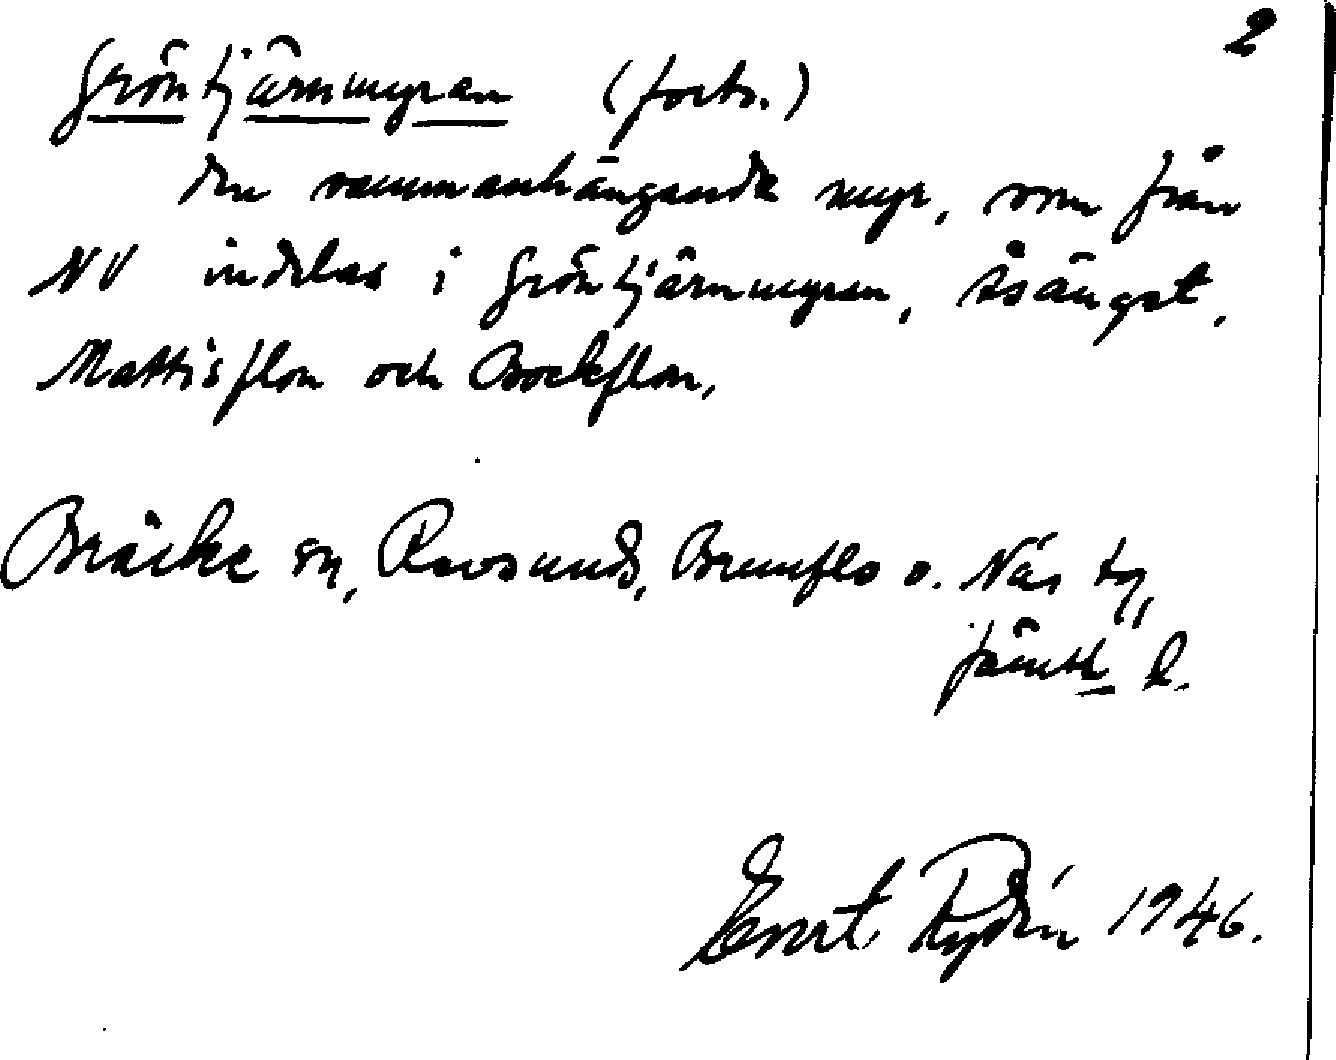 2
Gröntjärnmyran (forts.)
den sammanhängande myr, som från
NV indelas i Gröntjärnmyran, Åsängst,
Mattisflon och Bockflon.
Bräcke sn, Revsunds, Brunflo o. Näs tg,
Jämtl l.
Evert Rydén 1946.